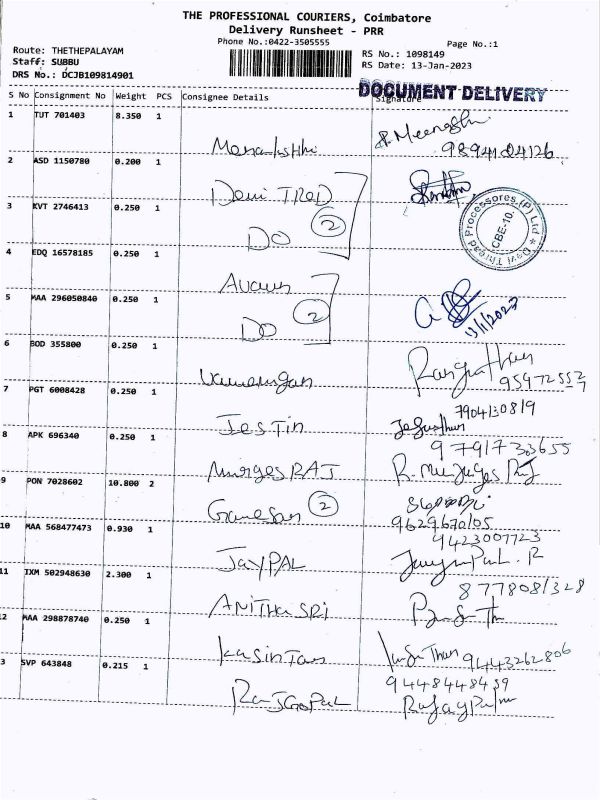 THE PROFESSIONAL COURIERS, Coimbatore
Delivery Runsheet - PRR
Phone No.:0422-3505555
Page No.:1
Route: THETHEPALAYAM
RS No.: 1098149
Staff: SUBBU
RS Date: 13-Jan-2023
DRS No.: DCJB109814901
DOCUMENT DELIVERY
S No Consignment No Weight PCS Consignee Details Signature
1 TUT 701403 8.350 1
9894184126
2 ASD 1150780 0.200 1
Devi TRED
3 KVT 2746413 0.250 1
DO 2
Devi Thread Processores (P) Ltd CBE-10.
4 EDQ 16578185 0.250 1
5 MAA 296050840 0.250 1
DO 2
6 BOD 355800 0.250 1
7 PGT 6008428 0.250 1
7904130819
JesTin
8 APK 696340 0.250 1
9791733655
MurgesRAJ
9 PON 7028602 10.800 2
Ganesan 2
9629670105
10 MAA 568477473 0.930 1
9423007723
JAYPAL
11 IXM 502948630 2.300 1
8778081328
ANITHA SRI
12 MAA 298878740 0.250 1
9443262806
3 SVP 643848 0.215 1
9448448439
RAJGOPAL